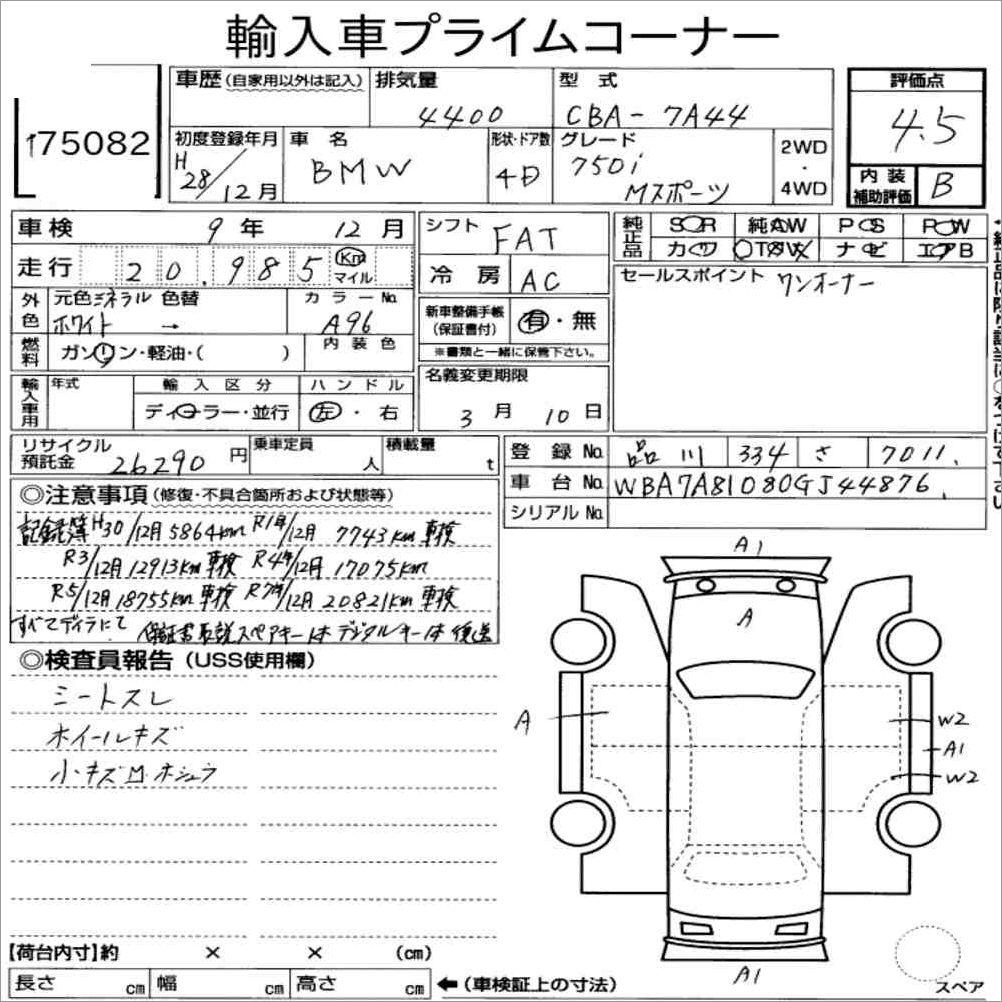 輸入車プライムコーナー
車歴(自家用以外は記入) 排気量 4400
型式 CBA-7A44
評価点 4.5
75082
初度登録年月 H28/12月
車名 BMW
形状・ドア数 4D
グレード 750i Mスポーツ
2WD・4WD
内装補助評価 B
車検 9年 12月
シフト FAT
純正品 SR 純AW PS PW
カワ TV ナビ エアB
走行 20,985 Km マイル
冷房 AC
セールスポイント ワンオーナー
外色 元色 ミネラルホワイト 色替 → カラーNo. A96
新車整備手帳(保証書付) 有・無
※書類と一緒に保管下さい。
燃料 ガソリン・軽油・( ) 内装色
名義変更期限 3月 10日
輸入車用 年式 輸入区分 ディーラー・並行 ハンドル 左・右
リサイクル預託金 26290円 乗車定員 人 積載量 t
登録No. 品川 334 さ 7011.
車台No. WBA7A81080GJ44876.
シリアルNo.
◎注意事項(修復・不具合箇所および状態等)
記録簿 H30/12月 5864km R1年/12月 7743km 車検
R3/12月 12913km 車検 R4年/12月 17075km
R5/12月 18755km 車検 R7年/12月 20821km 車検
すべてディラにて 保証書 取説 スペアキー1本 デジタルキー1本 後送
◎検査員報告(USS使用欄)
シートスレ
ホイールキズ
小・キズ M・ホシュウ
A1
A
A
W2
A1
W2
A1
スペア
【荷台内寸】約 × × (cm)
長さ cm 幅 cm 高さ cm ←(車検証上の寸法)